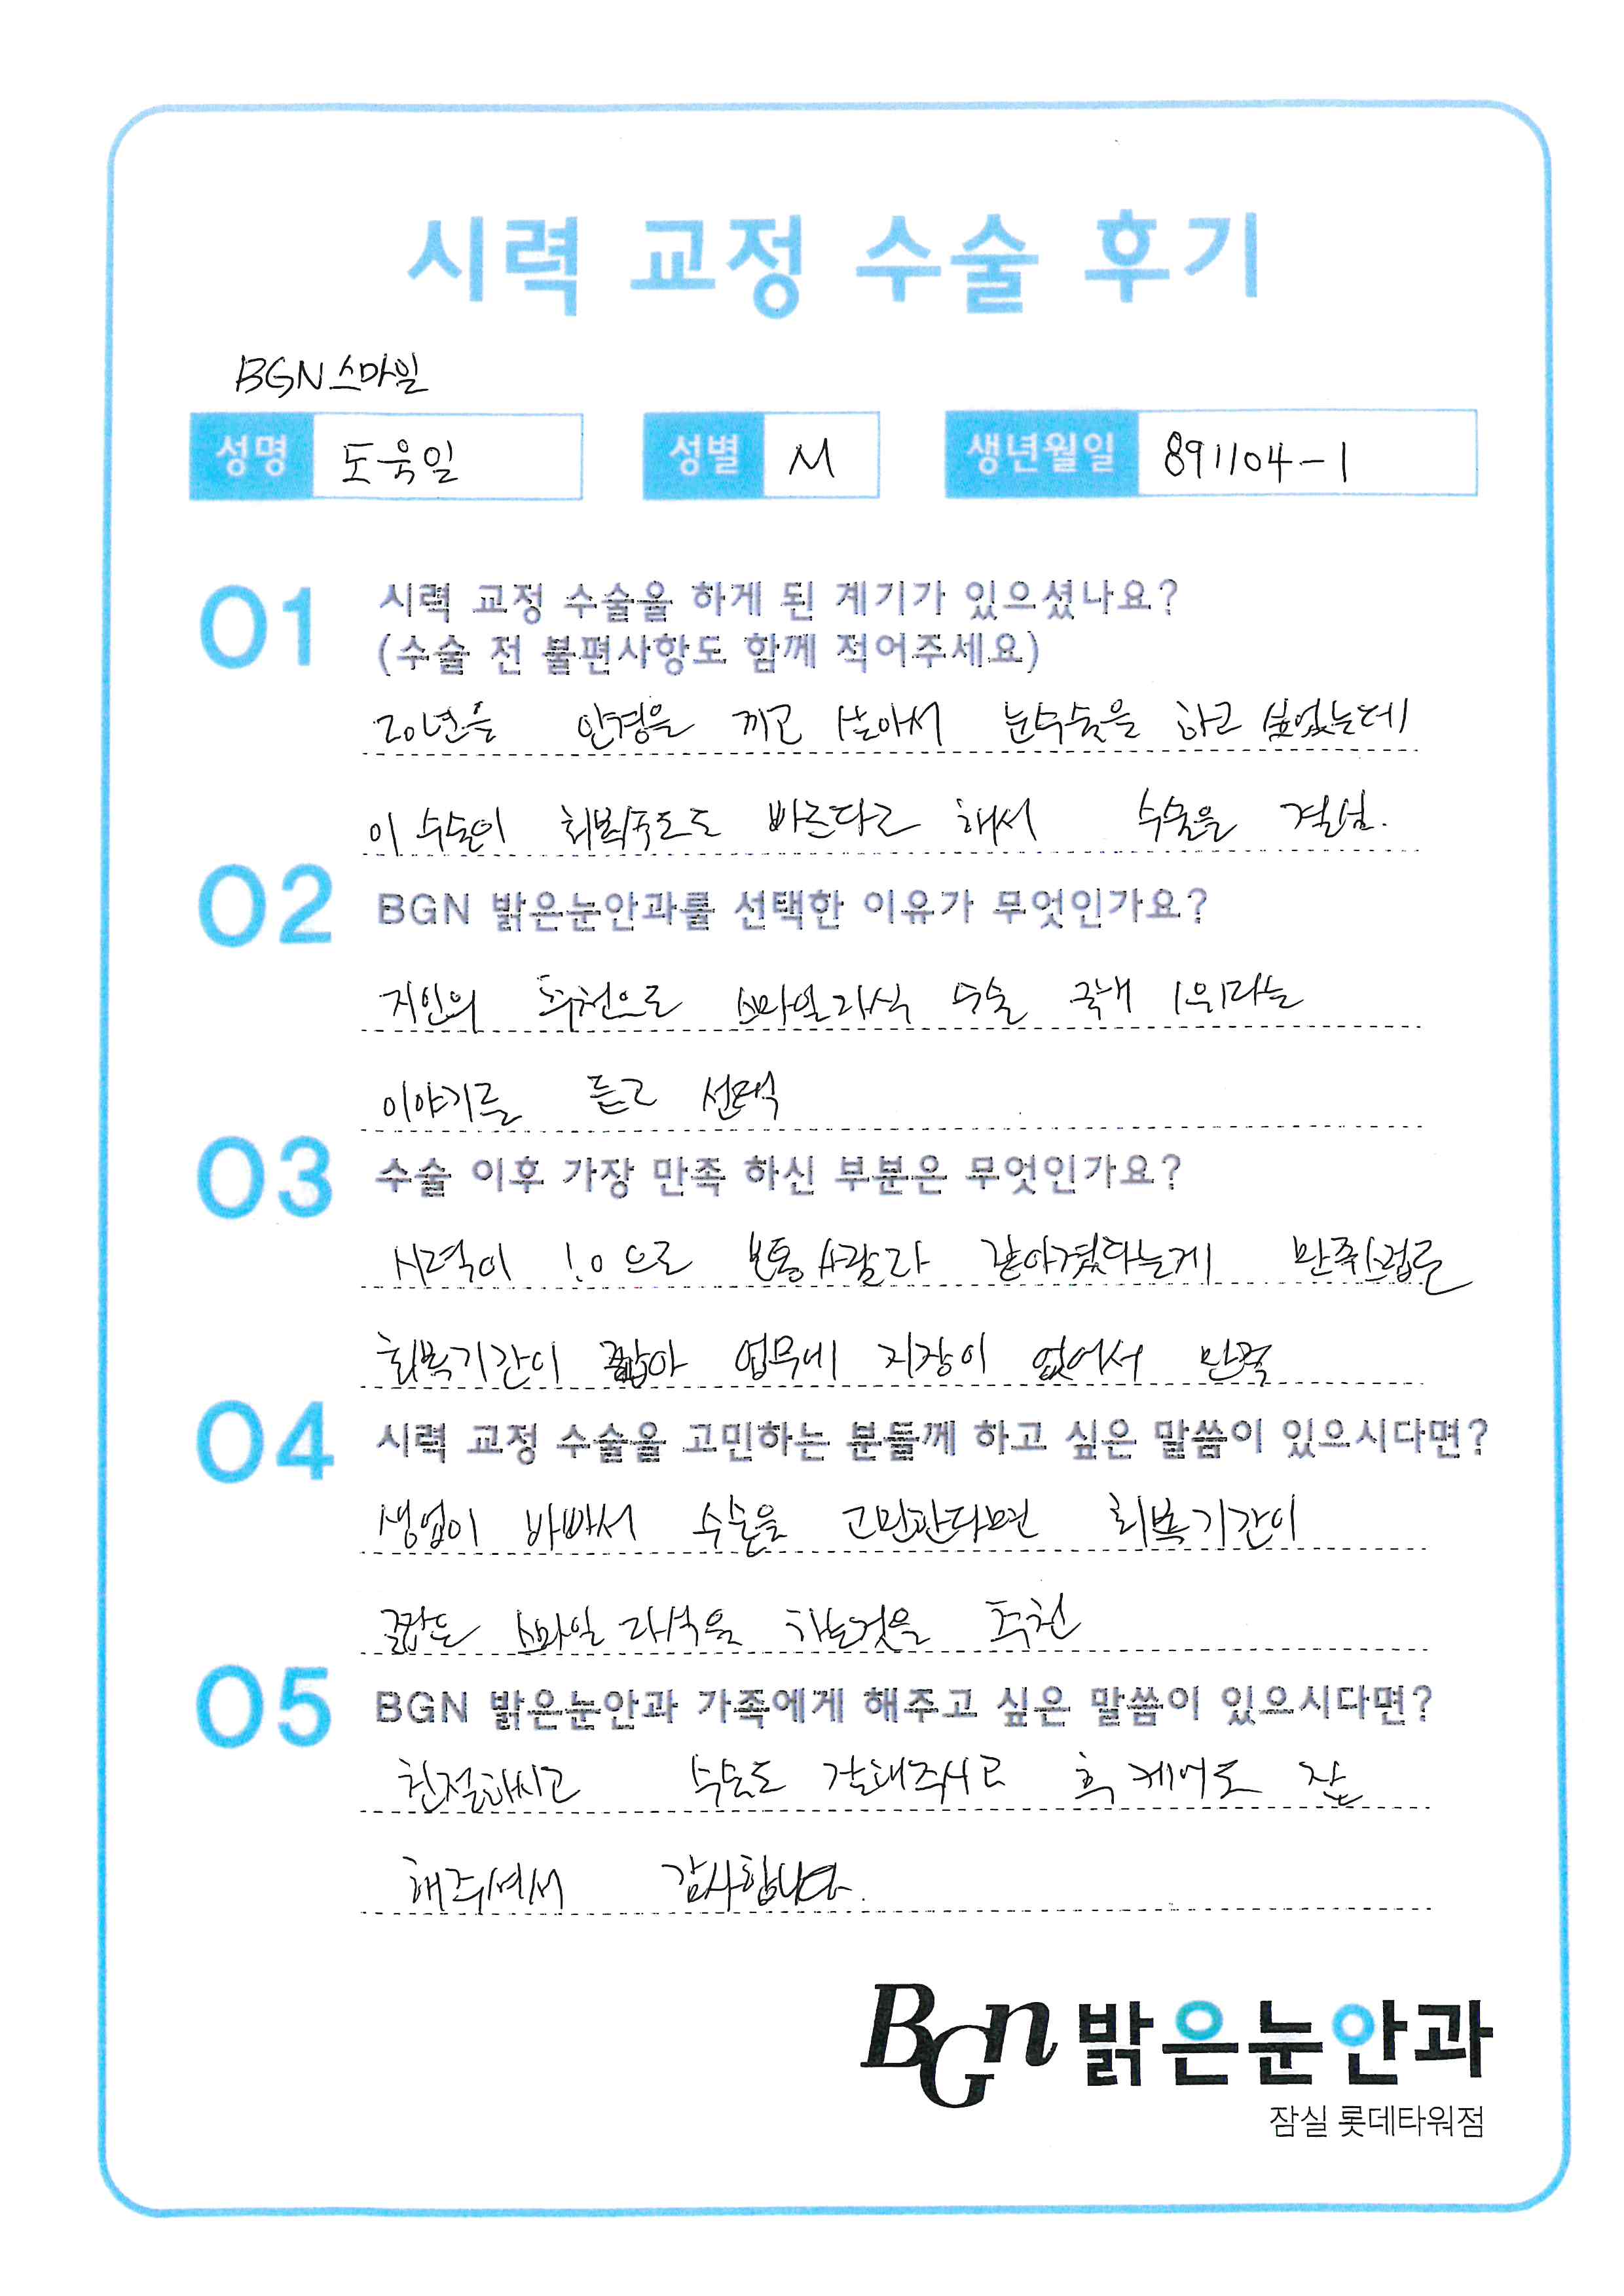 시력 교정 수술 후기
BGN 스마일
성명 도욱일 성별 M 생년월일 891104-1
01 시력 교정 수술을 하게 된 계기가 있으셨나요?
(수술 전 불편사항도 함께 적어주세요)
20년을 안경을 끼고 살아서 눈수술을 하고 싶었는데
이 수술이 회복속도도 빠르다고 해서 수술을 결심.
02 BGN 밝은눈안과를 선택한 이유가 무엇인가요?
지인의 추천으로 스마일라식 수술 국내 1위라는
이야기를 듣고 선택
03 수술 이후 가장 만족 하신 부분은 무엇인가요?
시력이 1.0으로 보통사람과 같아졌다는게 만족스럽고
회복기간이 짧아 업무에 지장이 없어서 만족
04 시력 교정 수술을 고민하는 분들께 하고 싶은 말씀이 있으시다면?
생업이 바빠서 수술을 고민한다면 회복기간이
짧은 스마일라식을 하는것을 추천
05 BGN 밝은눈안과 가족에게 해주고 싶은 말씀이 있으시다면?
친절하시고 수술도 잘해주시고 후 케어도 잘
해주셔서 감사합니다.
BGN 밝은눈안과
잠실 롯데타워점